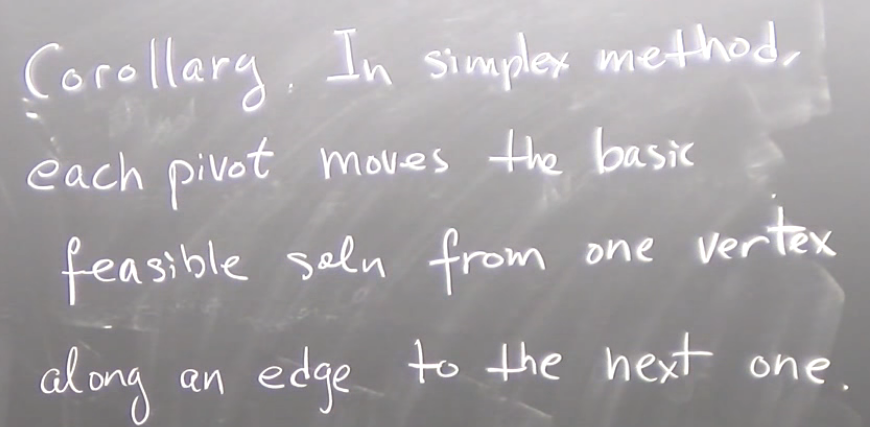 Corollary. In simplex method,
each pivot moves the basic
feasible soln from one vertex
along an edge to the next one.